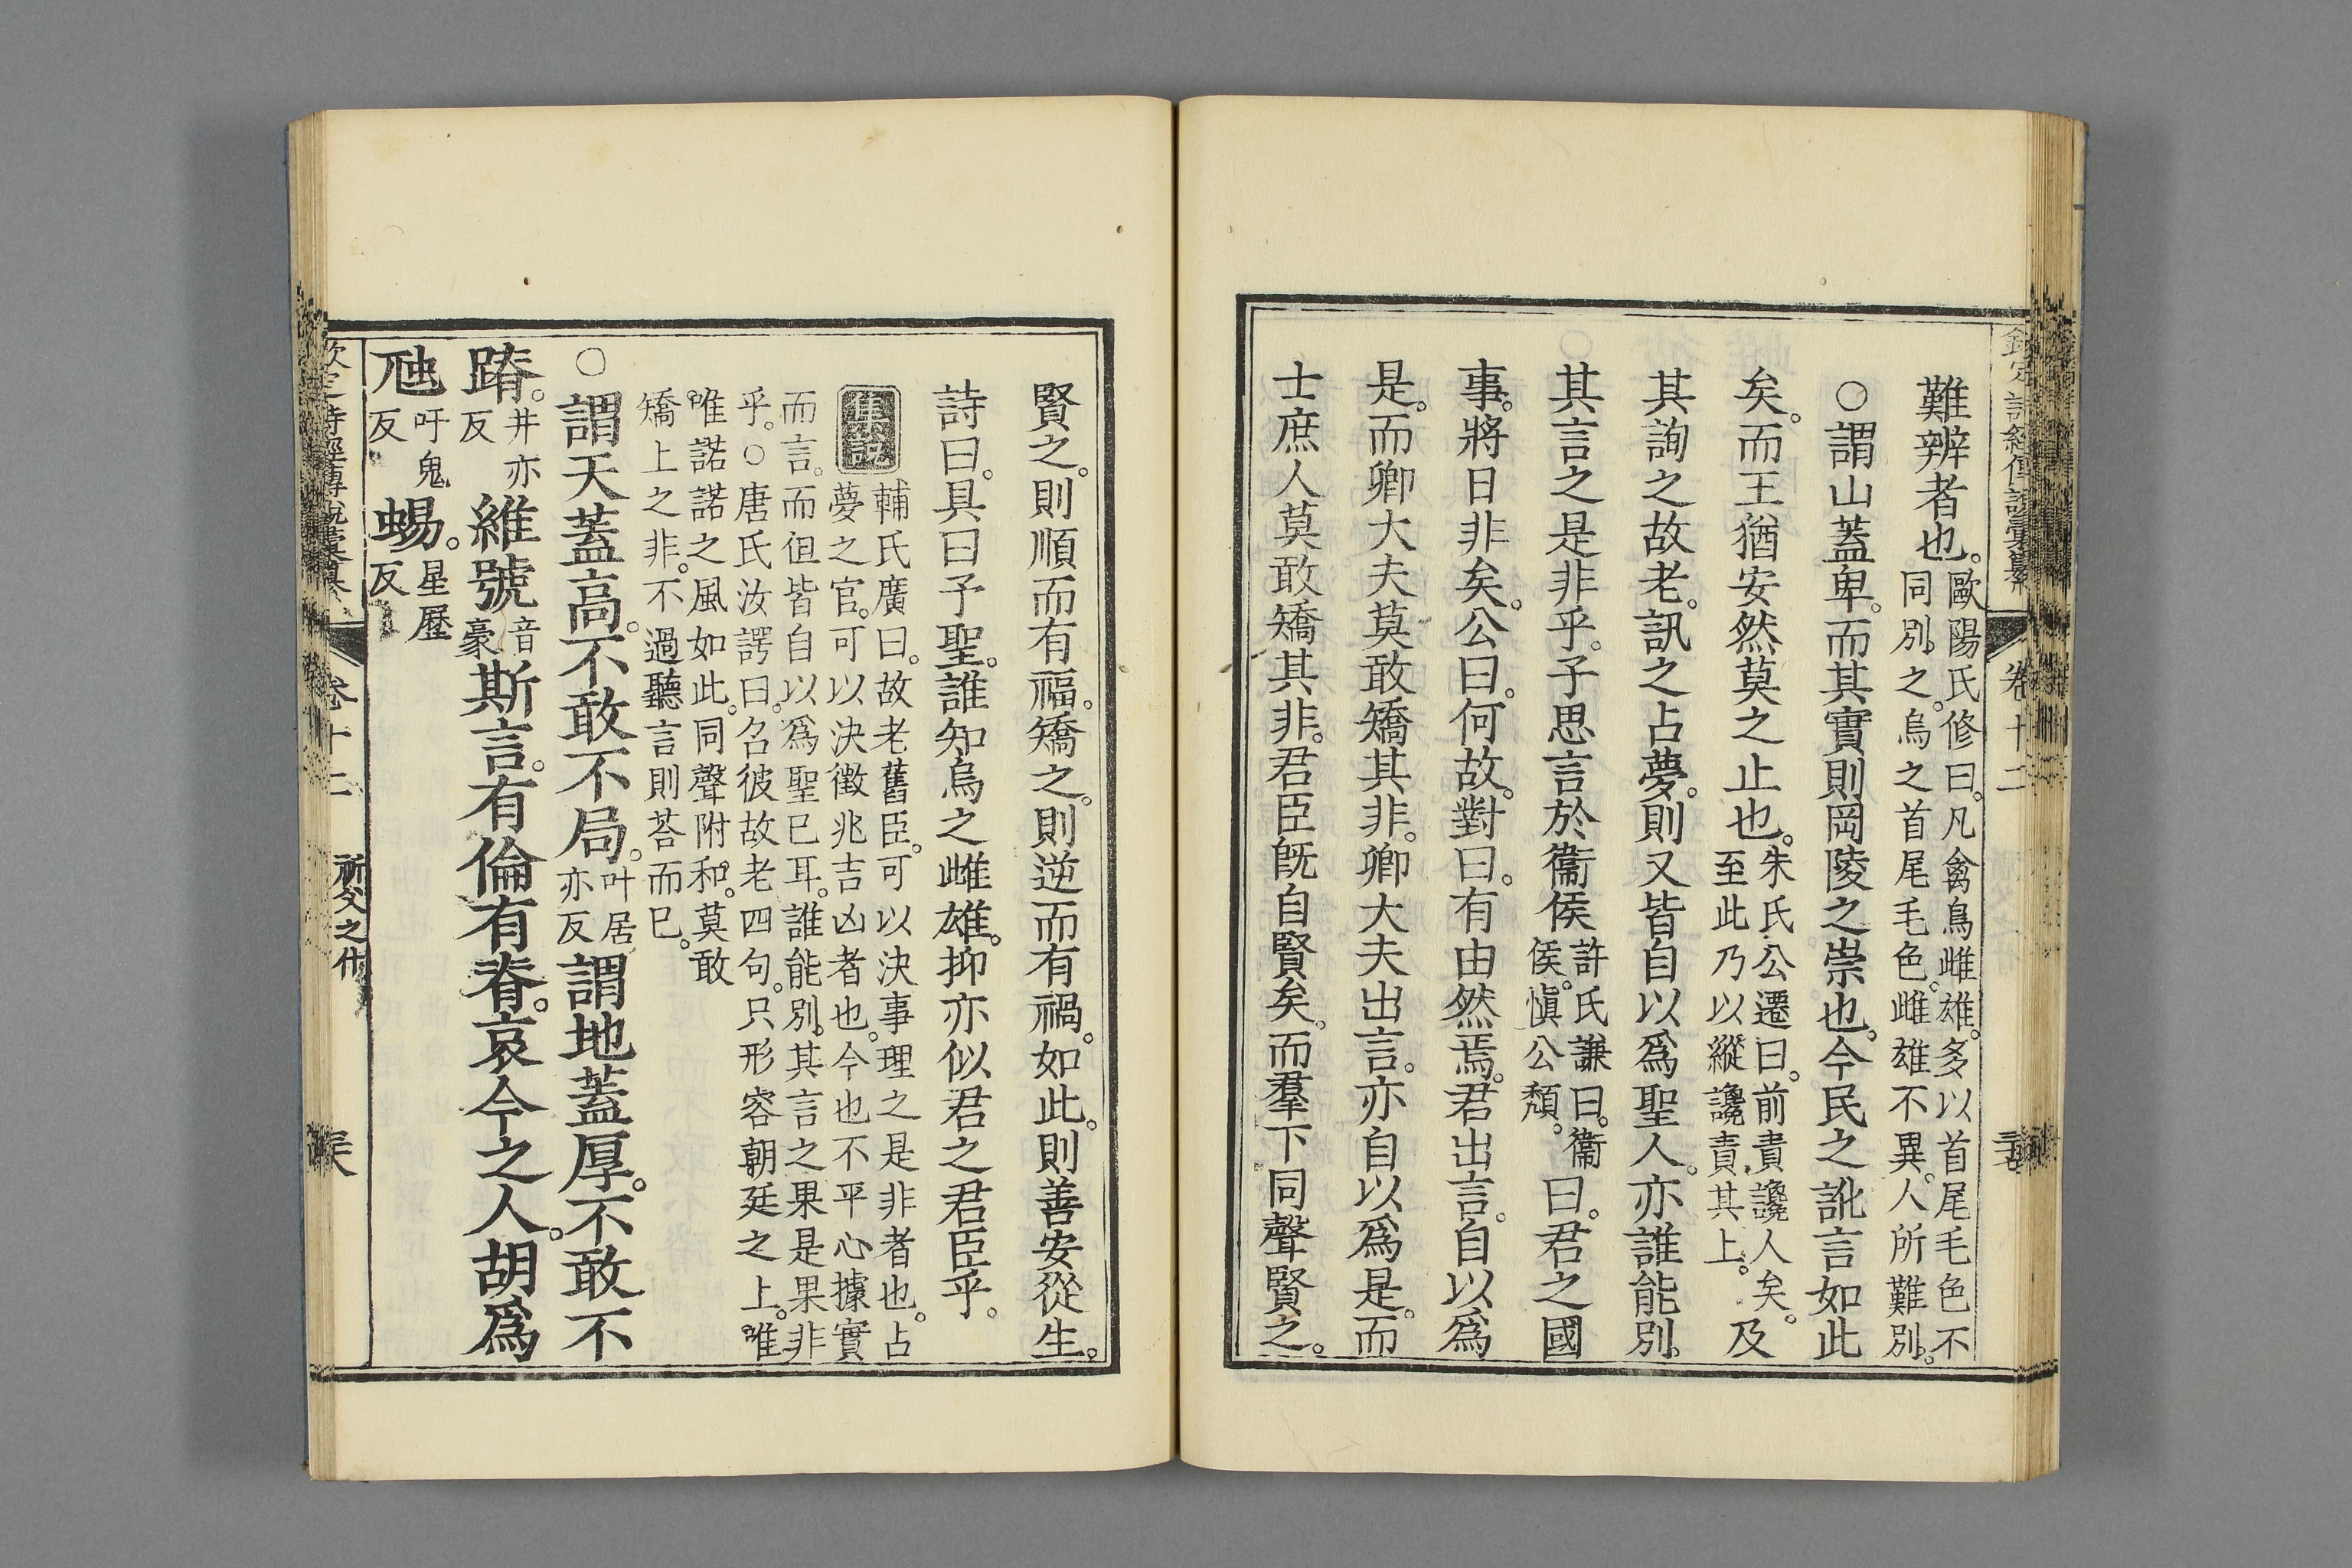 難辨者也。歐陽氏修曰。凡禽鳥雌雄。多以首尾毛色不
同別之。烏之首尾毛色。雌雄不異。人所難別。
○謂山蓋卑。而其實則岡陵之崇也。今民之訛言如此
矣。而王猶安然莫之止也。朱氏公遷曰。前責讒人矣。
至此乃以縱讒責其上。及
其詢之故老。訊之占夢。則又皆自以爲聖人。亦誰能別
其言之是非乎。子思言於衞侯許氏謙曰。衞
侯。愼公頹。曰。君之國
事。將日非矣。公曰。何故。對曰。有由然焉。君出言。自以爲
是。而卿大夫莫敢矯其非。卿大夫出言。亦自以爲是。而
士庶人莫敢矯其非。君臣旣自賢矣。而羣下同聲賢之。
欽定詩經傳說彙纂 卷十二
賢之。則順而有福。矯之。則逆而有禍。如此。則善安從生。
詩曰。具曰予聖。誰知烏之雌雄。抑亦似君之君臣乎。
集說 輔氏廣曰。故老舊臣。可以決事理之是非者也。占
夢之官。可以決徵兆吉凶者也。今也不平心據實
而言。而但皆自以爲聖已耳。誰能別其言之果是果非
乎。○唐氏汝諤曰。召彼故老四句。只形容朝廷之上。唯
唯諾諾之風如此。同聲附和。莫敢
矯上之非。不過聽言則荅而已。
○謂天蓋高。不敢不局。叶居
亦反謂地蓋厚。不敢不
蹐。井亦
反維號音
豪斯言。有倫有脊。哀今之人。胡爲
虺吁鬼
反蜴。星歷
反
欽定詩經傳說彙纂 卷十二 祈父之什